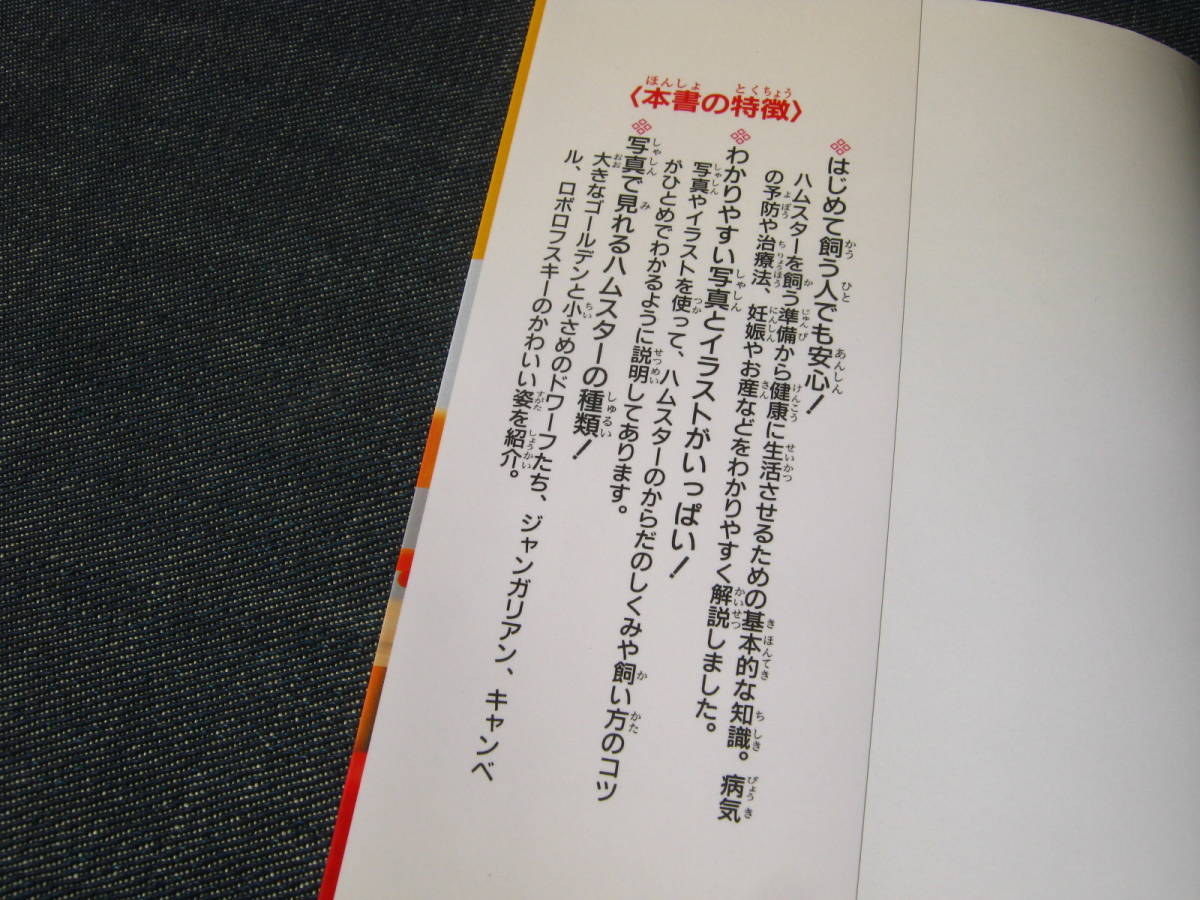 〈本書の特徴〉
はじめて飼う人でも安心！
ハムスターを飼う準備から健康に生活させるための基本的な知識。病気
の予防や治療法、妊娠やお産などをわかりやすく解説しました。
わかりやすい写真とイラストがいっぱい！
写真やイラストを使って、ハムスターのからだのしくみや飼い方のコツ
がひとめでわかるように説明してあります。
写真で見れるハムスターの種類！
大きなゴールデンと小さめのドワーフたち、ジャンガリアン、キャンベ
ル、ロボロフスキーのかわいい姿を紹介。